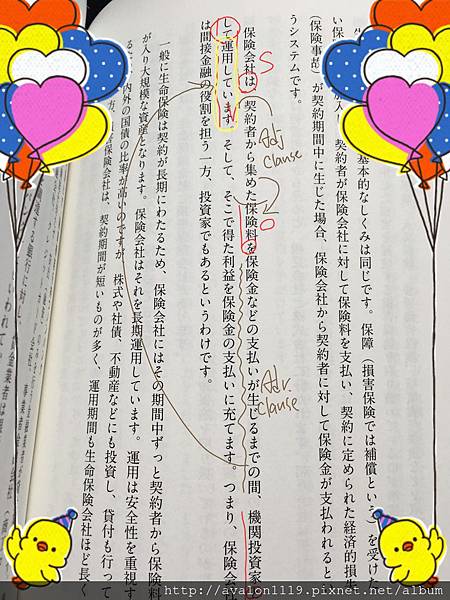 基本的なしくみは同じです。保障（損害保険では補償という）を受けた
契約者が保険会社に対して保険料を支払い、契約に定められた経済的損失
（保険事故）が契約期間中に生じた場合、保険会社から契約者に対して保険金が支払われるとい
うシステムです。
保険会社は、契約者から集めた保険料を保険金などの支払いが生じるまでの間、機関投資家
して運用しています。そして、そこで得た利益を保険金の支払いに充てます。つまり、保険会
は間接金融の役割を担う一方、投資家でもあるというわけです。
一般に生命保険は契約が長期にわたるため、保険会社にはその期間中ずっと契約者から保険料
が入り大規模な資産となります。保険会社はそれを長期運用しています。運用は安全性を重視す
内外の国債の比率が高いのですが、株式や社債、不動産などにも投資し、貸付も行って
保険会社は、契約期間が短いものが多く、運用期間も生命保険会社ほど長く
S
V
O
Adj
clause
Adv.
clause
http://avalon1119.pixnet.net/album